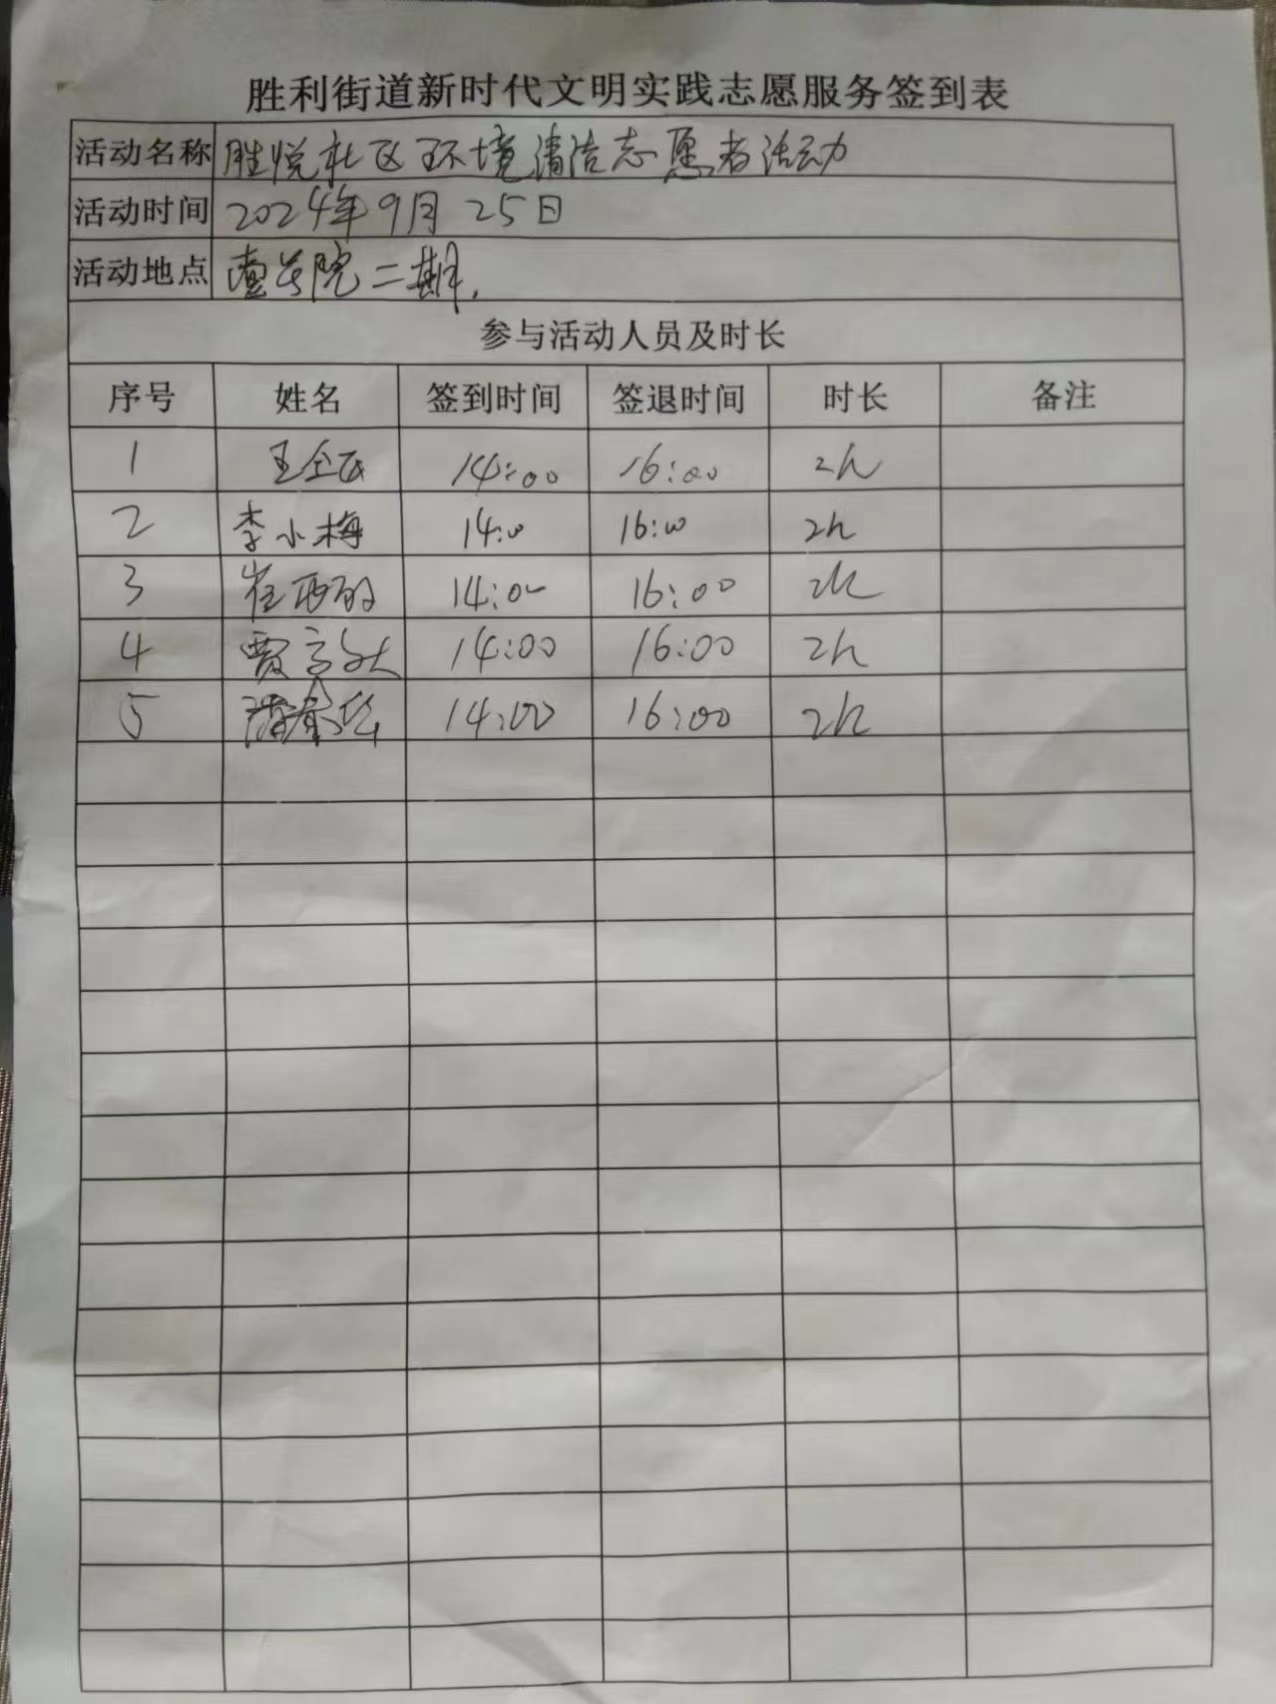 胜利街道新时代文明实践志愿服务签到表
活动名称 胜悦社区环境清洁志愿者活动
活动时间 2024年9月25日
活动地点 壹号院二期.
参与活动人员及时长
序号 姓名 签到时间 签退时间 时长 备注
1 14:00 16:00 2h
2 李小梅 14:00 16:00 2h
3 崔 14:00 16:00 2h
4 贾 14:00 16:00 2h
5 14:00 16:00 2h